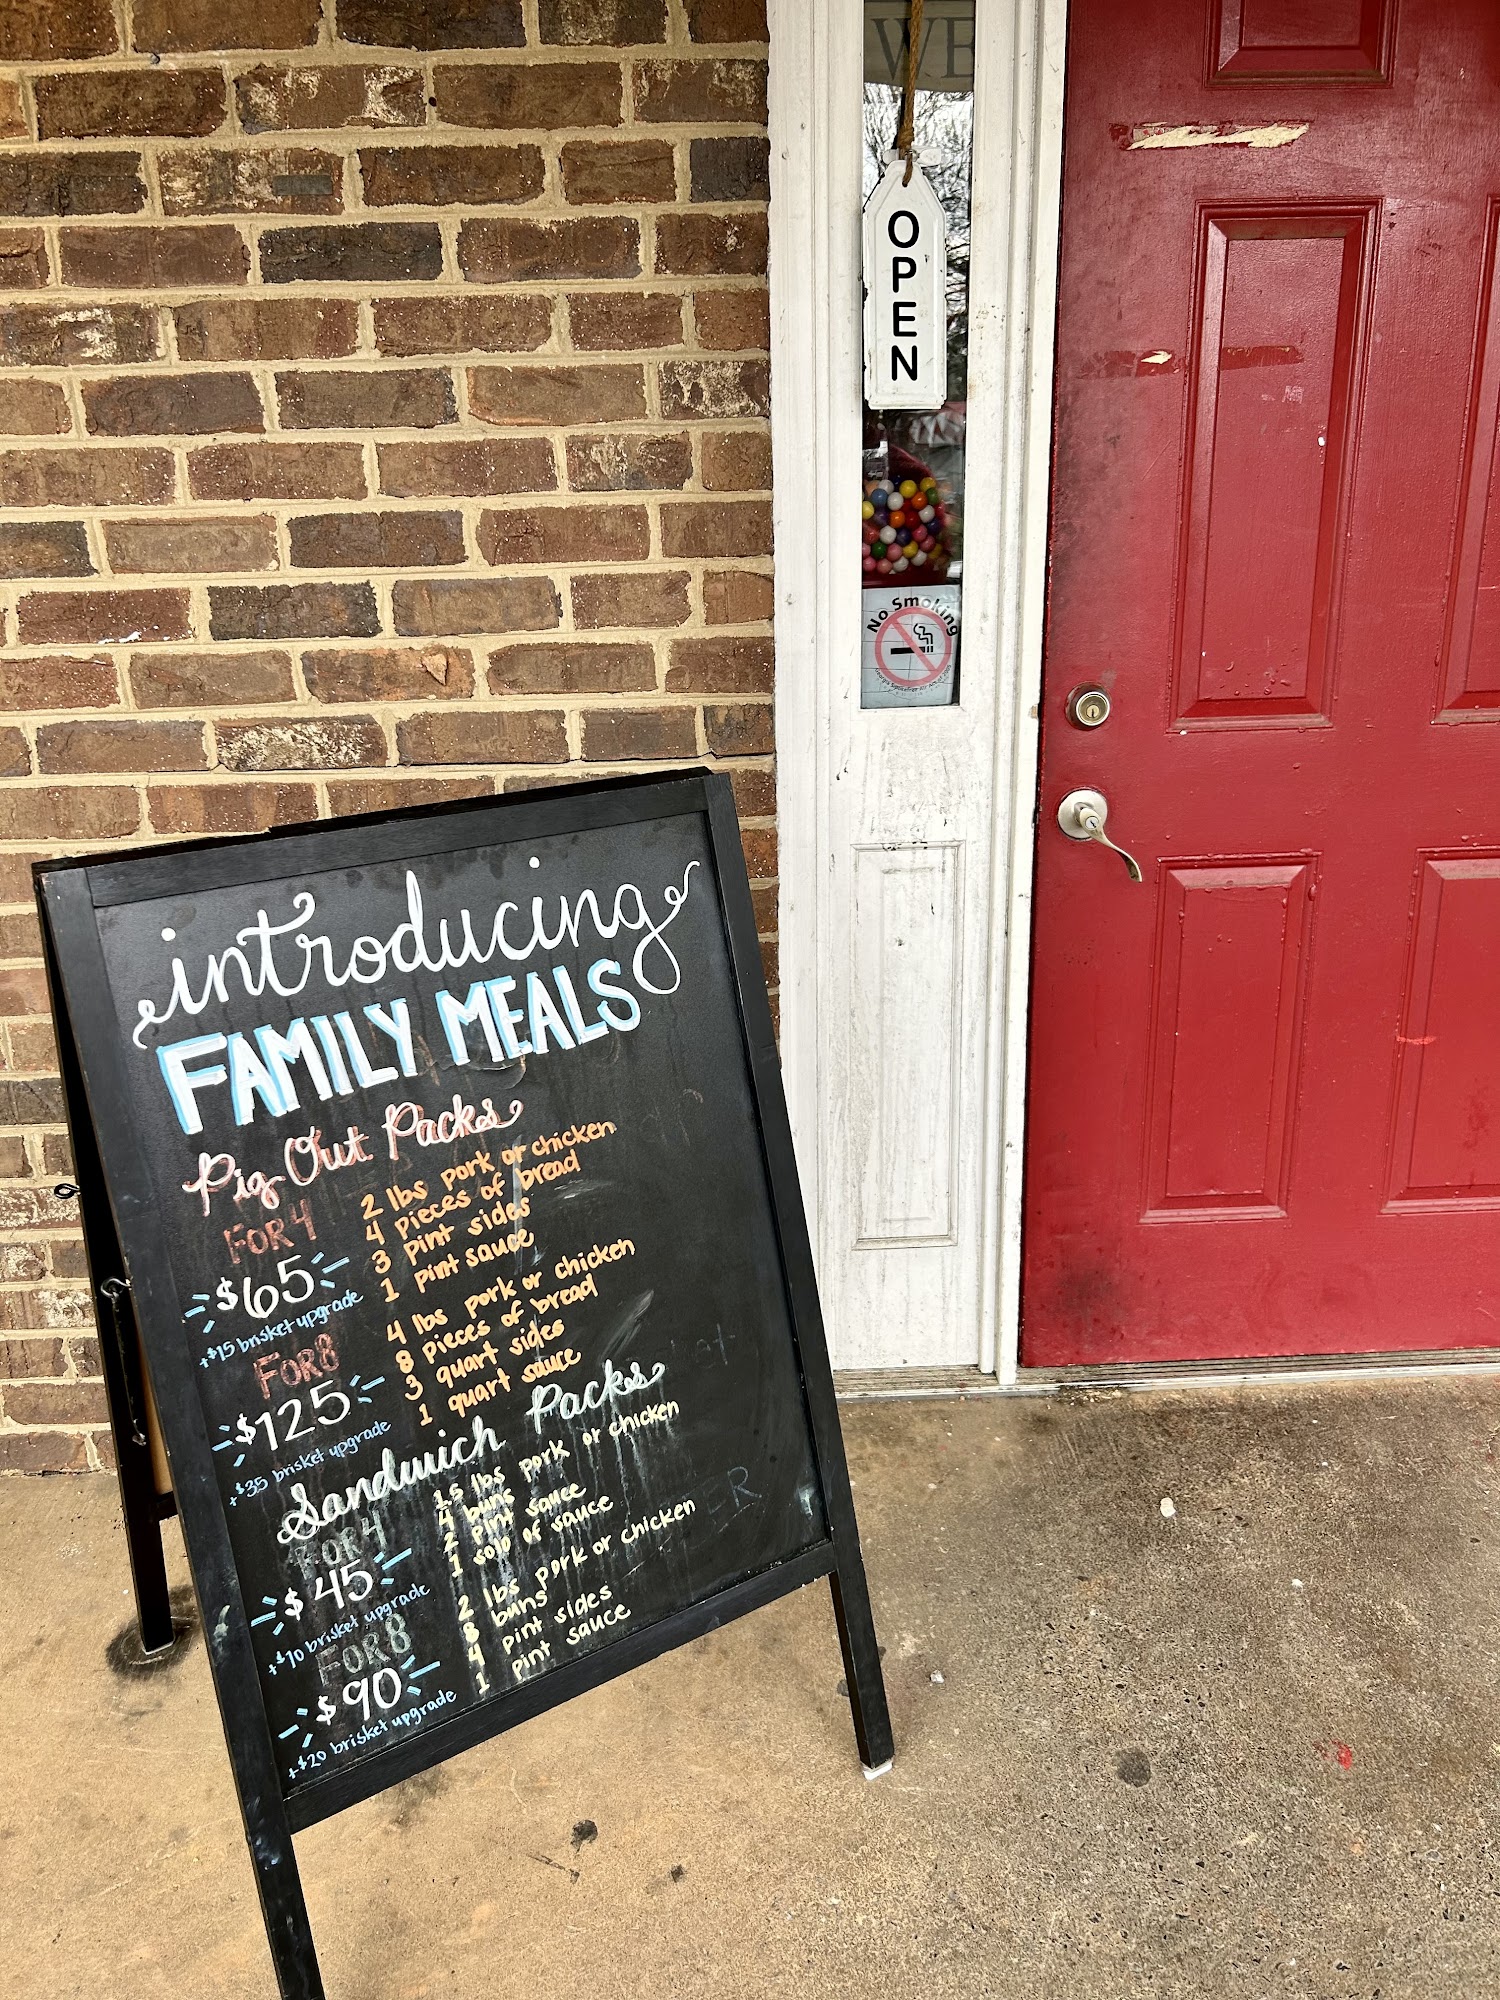 WE
OPEN
No Smoking
introducing
FAMILY MEALS
Pig Out Packs
FOR 4
$65
+$15 brisket upgrade
2 lbs pork or chicken
4 pieces of bread
3 pint sides
1 pint sauce
FOR 8
$125
+$35 brisket upgrade
4 lbs pork or chicken
8 pieces of bread
3 quart sides
1 quart sauce
Sandwich Packs
FOR 4
$45
+$10 brisket upgrade
1.5 lbs pork or chicken
4 buns
2 pint sauce
1 solo of sauce
FOR 8
$90
+$20 brisket upgrade
2 lbs pork or chicken
8 buns
4 pint sides
1 pint sauce